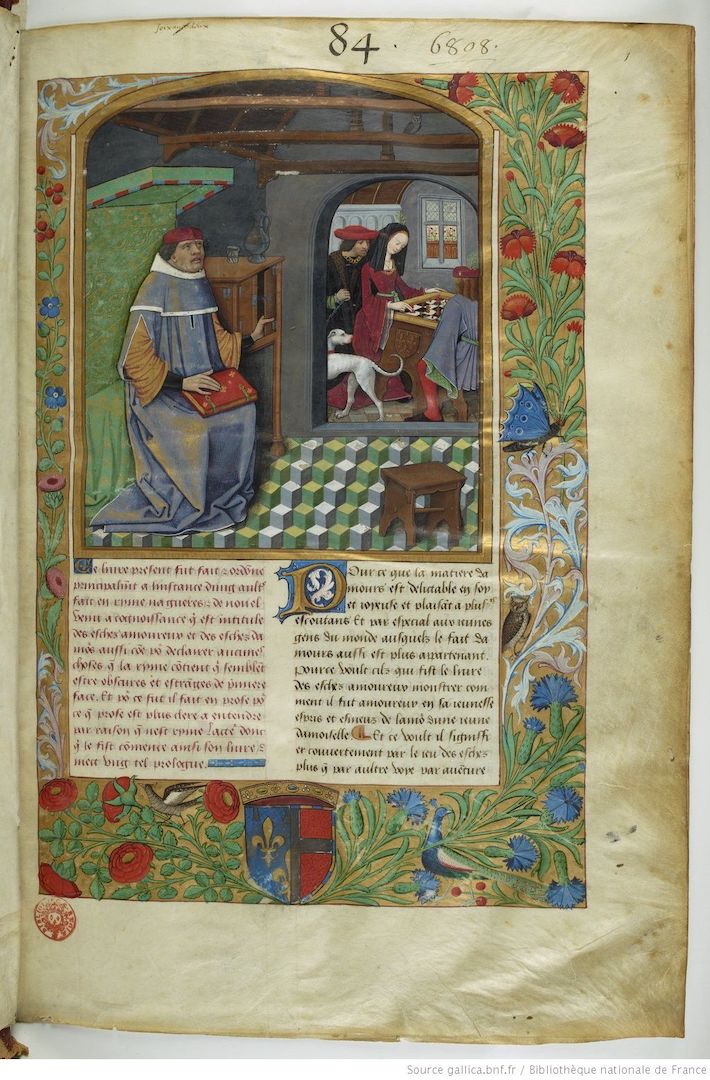 84.
6808.
1
Ce livre present fut fait & ordõne
principalmẽt a linstance dung aultʳ
fait en ryme na gueres & de nouel
venu a cognoissance q̃ est intitule
des esches amoureux et des esches da
mõs aussi cõe põ declarer aucunes
choses q̃ la ryme cõtient q̃ semblẽt
estre obscures et estrãges de p̃miere
face. Et põ ce fut il fait en prose põ
ce q̃ prose est plus clere a entendre
par raison q̃ nest ryme
q̃ le fist cõmence ainsi son livre &
mect vng tel prologue.
Pour ce que la matiere da
mours est delictable en soy
et ioyeuse et plaisãt a plusʳˢ
escoutans Et par especial aux ieunes
gens du monde ausquelz le fait da
mours aussi est plus appartenant.
Pource voult cilz qui fist le livre
des esches amoureux monstrer com
ment il fut amoureux en sa ieunesse
espris et esmeus de lamõ dune ieune
damoiselle. Et ce voult il signifi
er couvertement par le ieu des esches
plus q̃ par aultre voye par auẽture
Source gallica.bnf.fr / Bibliothèque nationale de France